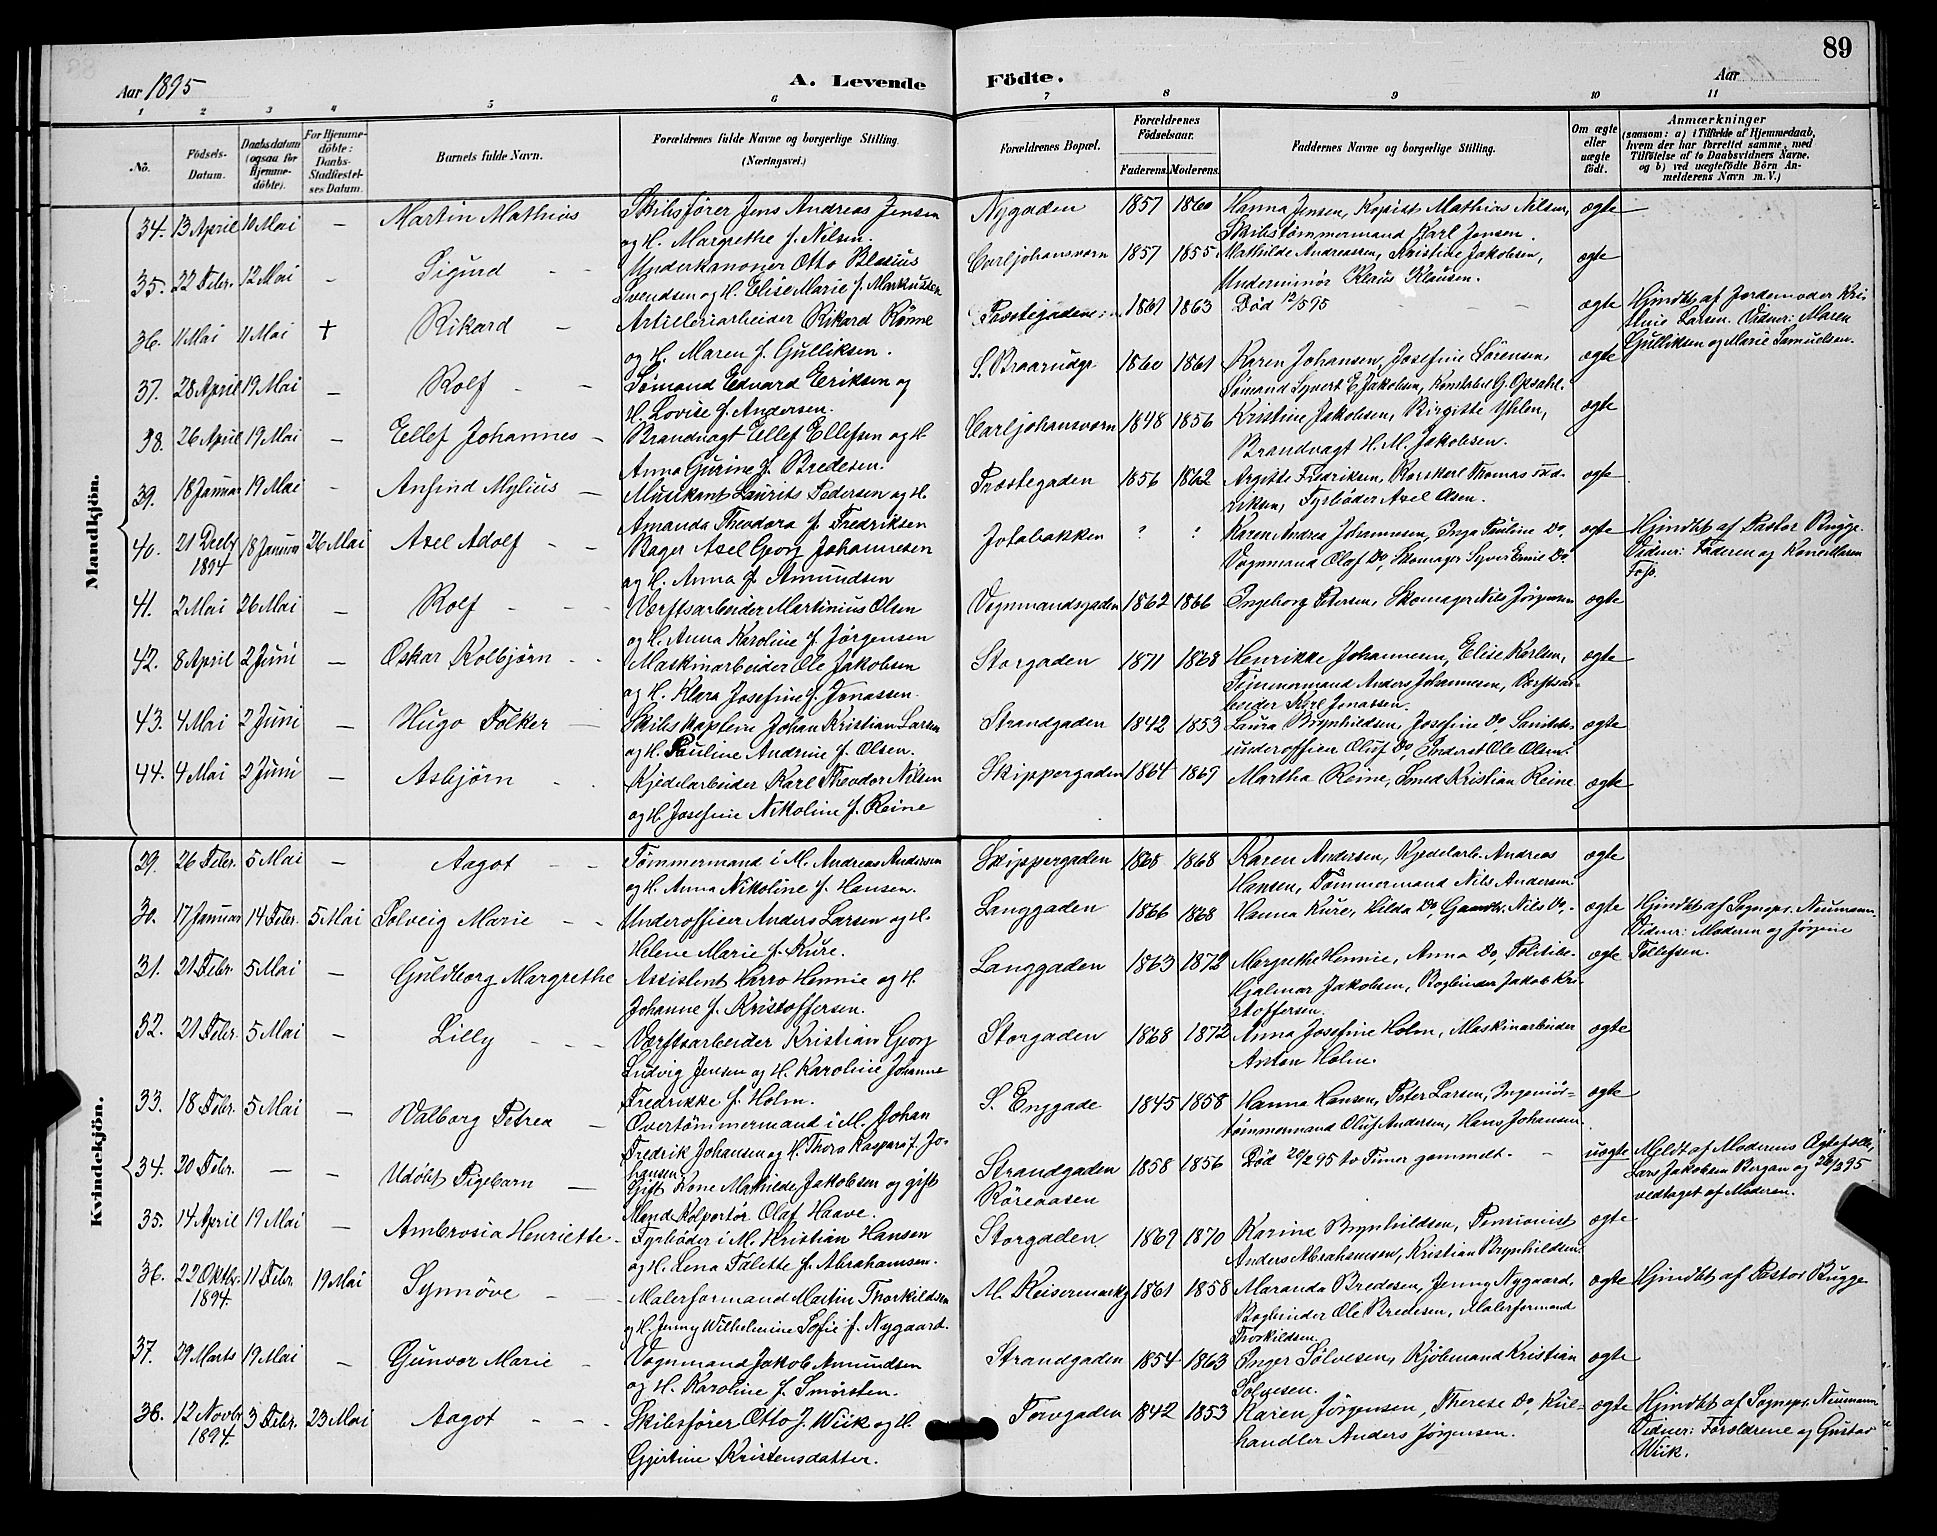 89
Aar 1895
A. Levende Födte.
Aar
1 2 3 4 5 6 7 8 9 10 11
No.
Födsels-Datum.
Daabsdatum (ogsaa for Hjemme-döbte).
For Hjemme-döbte: Daabs-Stadfæstel-ses Datum.
Barnets fulde Navn.
Forældrenes fulde Navne og borgerlige Stilling. (Næringsvei.)
Forældrenes Bopæl.
Forældrenes Födselsaar.
Faderens. Moderens.
Faddernes Navne og borgerlige Stilling.
Om ægte eller uægte födt.
Anmærkninger (saasom: a) i Tilfælde af Hjemmedaab, hvem der har forrettet samme, med Tilföielse af to Daabsvidners Navne, og b) ved uægtefödte Börn An-melderens Navn m. V.)
Mandkjön.
34. 13 April 10 Mai — Martin Mathias Skibsförer Jens Andreas Jensen Nygaden 1857 1860 Hanna Jensen, Kopist Mathias Nilsen, ægte
og H. Margrethe f. Nilsen. Skibstömmermand Karl Jensen.
35. 22 Febr. 12 Mai — Sigurd Underkanoner Otto Blasius Carljohansværn 1857 1855 Mathilde Andreassen, Kristine Jakobsen, ægte
Svendsen og H. Elise Marie f. Markussen Underminör Klaus Klausen.
36. 11 Mai 11 Mai + Rikard Artilleriarbeider Rikard Rönne Præstegaden 1861 1863 Död 12/5 95 ægte Hjmdbt af Jordemoder Kri-
og H. Maren f. Gulliksen. stine Larsen. Vidner: Maren
Gulliksen og Marie Samuelsen.
37. 28 April 19 Mai — Rolf Sömand Edvard Eriksen og S. Braarudgt 1860 1861 Karen Johansen, Josefine Sörensen, ægte
H. Lovise f. Andersen. Sömand Syvert E. Jakobsen, Konstabel G. Opsahl.
38. 26 April 19 Mai — Ellef Johannes Brandvagt Ellef Ellefsen og H. Carljohansværn 1848 1856 Kristine Jakobsen, Birgitte Yhlen, ægte
Anna Gurine f. Bredesen. Brandvagt H. M. Jakobsen.
39. 18 Januar 19 Mai — Anfind Mylius Musikant Laurits Pedersen og H. Præstegaden 1856 1862 Fredriksen, Thomas Fred- ægte
Amanda Theodora f. Fredriksen riksen, Fyrböder Axel Olsen.
40. 21 Decbr 1894 18 Januar 26 Mai Axel Adolf Bager Axel Georg Johannesen Jotabakken ? ? Karen Andrea Johannesen, Inga Pauline Do, ægte Hjmdbt af Pastor Bugge.
og H. Anna f. Amundsen Vognmand Olaf Do, Skomager Syver Do. Vidner: Faderen og
41. 2 Mai 26 Mai — Rolf Værftsarbeider Martinius Olsen Vognmandsgaden 1862 1866 Ingeborg Petersen, Skomager Nils Jörgensen ægte
og H. Anna Karoline f. Jörgensen
42. 8 April 2 Juni — Oskar Kolbjörn Maskinarbeider Ole Jakobsen Storgaden 1871 1868 Henrikke Johannesen, Elise Karlsen, ægte
og H. Klara Josefine f. Jonassen. Tömmermand Anders Johannesen, Værftsar-
beider Karl Jonassen.
43. 4 Mai 2 Juni — Hugo Folker Skibskaptein Johan Kristian Larsen Strandgaden 1842 1853 Laura Brynhildsen, Josefine Do, Sanitets- ægte
og H. Pauline Andrine f. Olsen. underofficer Oluf Do, Ole Olsen.
44. 4 Mai 2 Juni — Asbjörn Kjedelarbeider Karl Theodor Nilsen Skippergaden 1864 1869 Martha Reine, Smed Kristian Reine ægte
og H. Josefine Nikoline f. Reine
Kvindekjön.
29. 26 Febr. 5 Mai — Aagot Tömmermand i M. Andreas Andersen Skippergaden 1868 1868 Karen Andersen, Kjedelarb. Andreas ægte
og H. Anna Nikoline f. Hansen. Hansen, Tömmermand Nils Andersen.
30. 17 Januar 14 Febr. 5 Mai Solveig Marie Underofficer Anders Larsen og H. Langgaden 1866 1868 Hanna Kure, Hilda Do, Nils Do, ægte Hjmdbt af Sognepr. Neumann.
Helene Marie f. Kure. Vidner: Moderen og Jörgine
Tollefsen.
31. 21 Febr. 5 Mai — Guldborg Margrethe Assistent Harro Hennie og H. Langgaden 1863 1872 Margrethe Hennie, Anna Do, Politib. ægte
Johanne f. Kristoffersen. Hjalmar Jakobsen, Bogbinder Jakob Kri-
stoffersen.
32. 21 Febr. 5 Mai — Lilly Værftsarbeider Kristian Georg Storgaden 1868 1872 Anna Josefine Holm, Maskinarbeider ægte
Ludvig Jensen og H. Karoline Johanne Anton Holm.
Fredrikke f. Holm.
33. 18 Febr. 5 Mai — Valborg Petrea Overtömmermand i M. Johan S. Enggade 1845 1858 Hanna Hansen, Peter Larsen, Ingeniör- ægte
Fredrik Johansen og H. Thora Kaspara f. Jo- tömmermand Oluf Andersen, Hans Johansen.
hansen
34. 20 Febr. — — Udöbt Pigebarn Gift Kone Mathilde Jakobsen og gift Strandgaden 1858 1856 Död 20/2 95 to Timer gammelt. uægte Meldt af Moderens Ægtefælle,
Mand Kolportör Olaf Haave. Röreaasen Lars Jakobsen Bergan og 26/2 95
vedtaget af Moderen.
35. 14 April 19 Mai — Ambrosia Henriette Fyrböder i M. Kristian Hansen Storgaden 1869 1870 Karine Brynhildsen, Pensionist ægte
og H. Lena Talette f. Abrahamsen. Anders Abrahamsen, Kristian Brynhildsen.
36. 22 Oktbr. 1894. 11 Febr. 19 Mai Synnöve Malerformand Martin Thorkildsen M. Keisermarkg 1861 1858 Maranda Bredesen, Jenny Nygaard, ægte Hjmdbt af Pastor Bugge
og H. Jenny Wilhelmine Sofie f. Nygaard. Bogbinder Ole Bredesen, Malerformand
Thorkildsen.
37. 29 Marts 19 Mai — Gunvor Marie Vognmand Jakob Amundsen Strandgaden 1854 1863 Inger Sölvesen, Kjöbmand Kristian ægte
og H. Karoline f. Smörsten. Sölvesen.
38. 12 Novbr 1894. 3 Febr. 23 Mai Aagot Skibsförer Otto J. Wiik og H. Torvgaden 1842 1853 Karen Jörgensen, Therese Do, Kul- ægte Hjmdbt af Sognepr. Neumann
Gjertine Kristensdatter. handler Anders Jörgensen. Vidner: Forældrene og Gustav
Wiik.